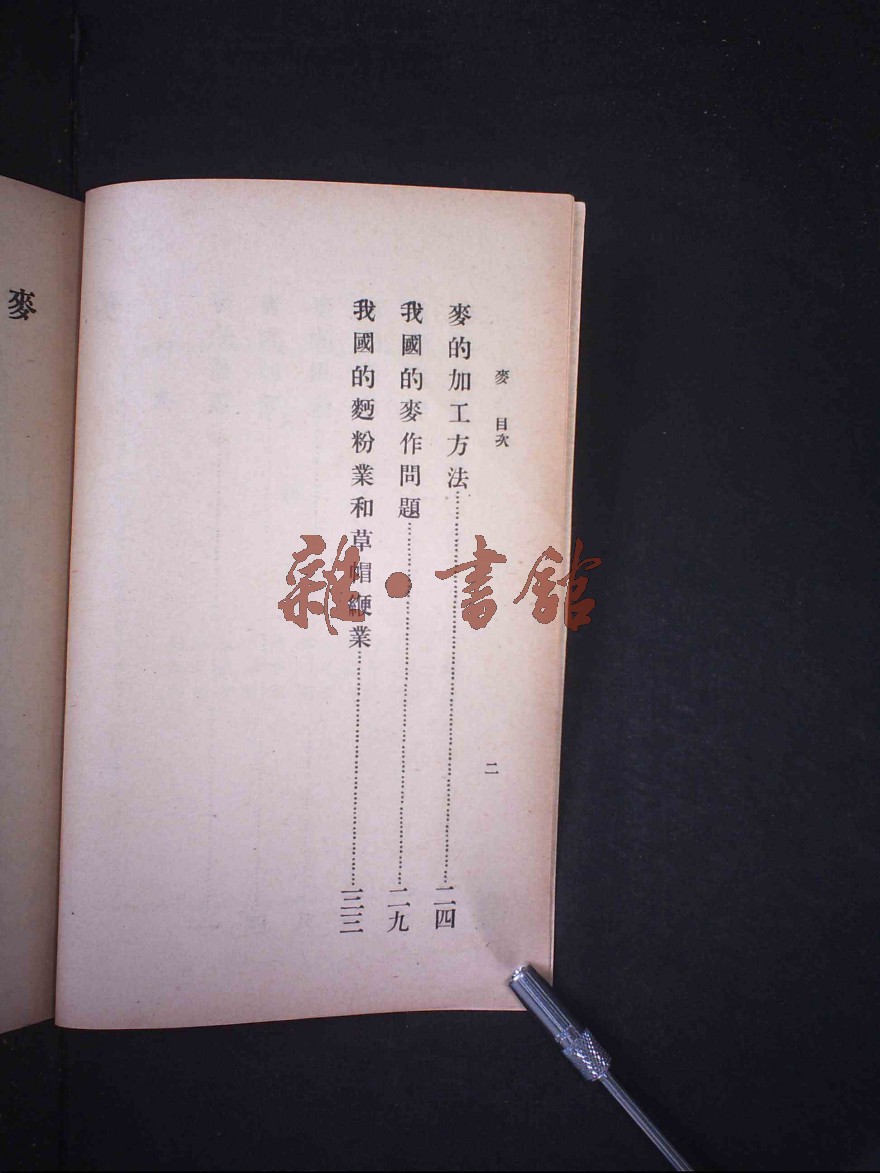 麥 目次
二
麥的加工方法……二四
我國的麥作問題……二九
我國的麪粉業和草帽緶業……三三
麥
雜·書館